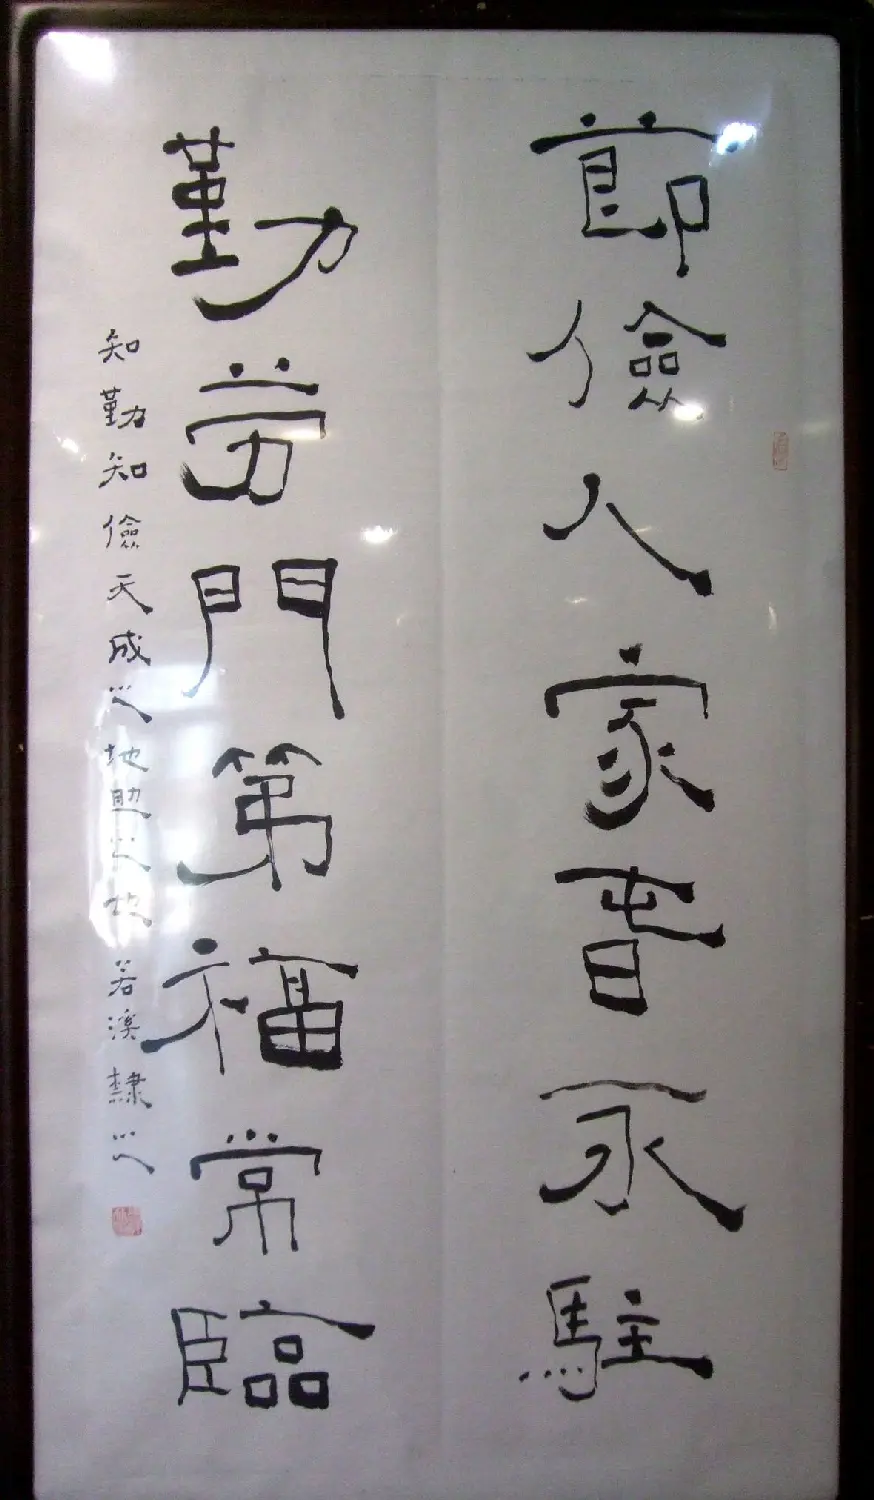 節儉人家春永駐
勤劳門第福常臨
知勤知儉天成以地助之也 若溪隸以